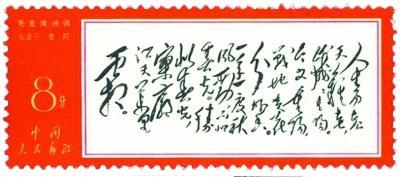 毛主席诗词
采桑子·重阳
8分
中国
人民邮政
人生易老
天难老岁
岁重阳
今又重阳
战地黄花
分外香
一年一度秋
风劲不似
春光胜
似春光
寥廓
江天万里
霜